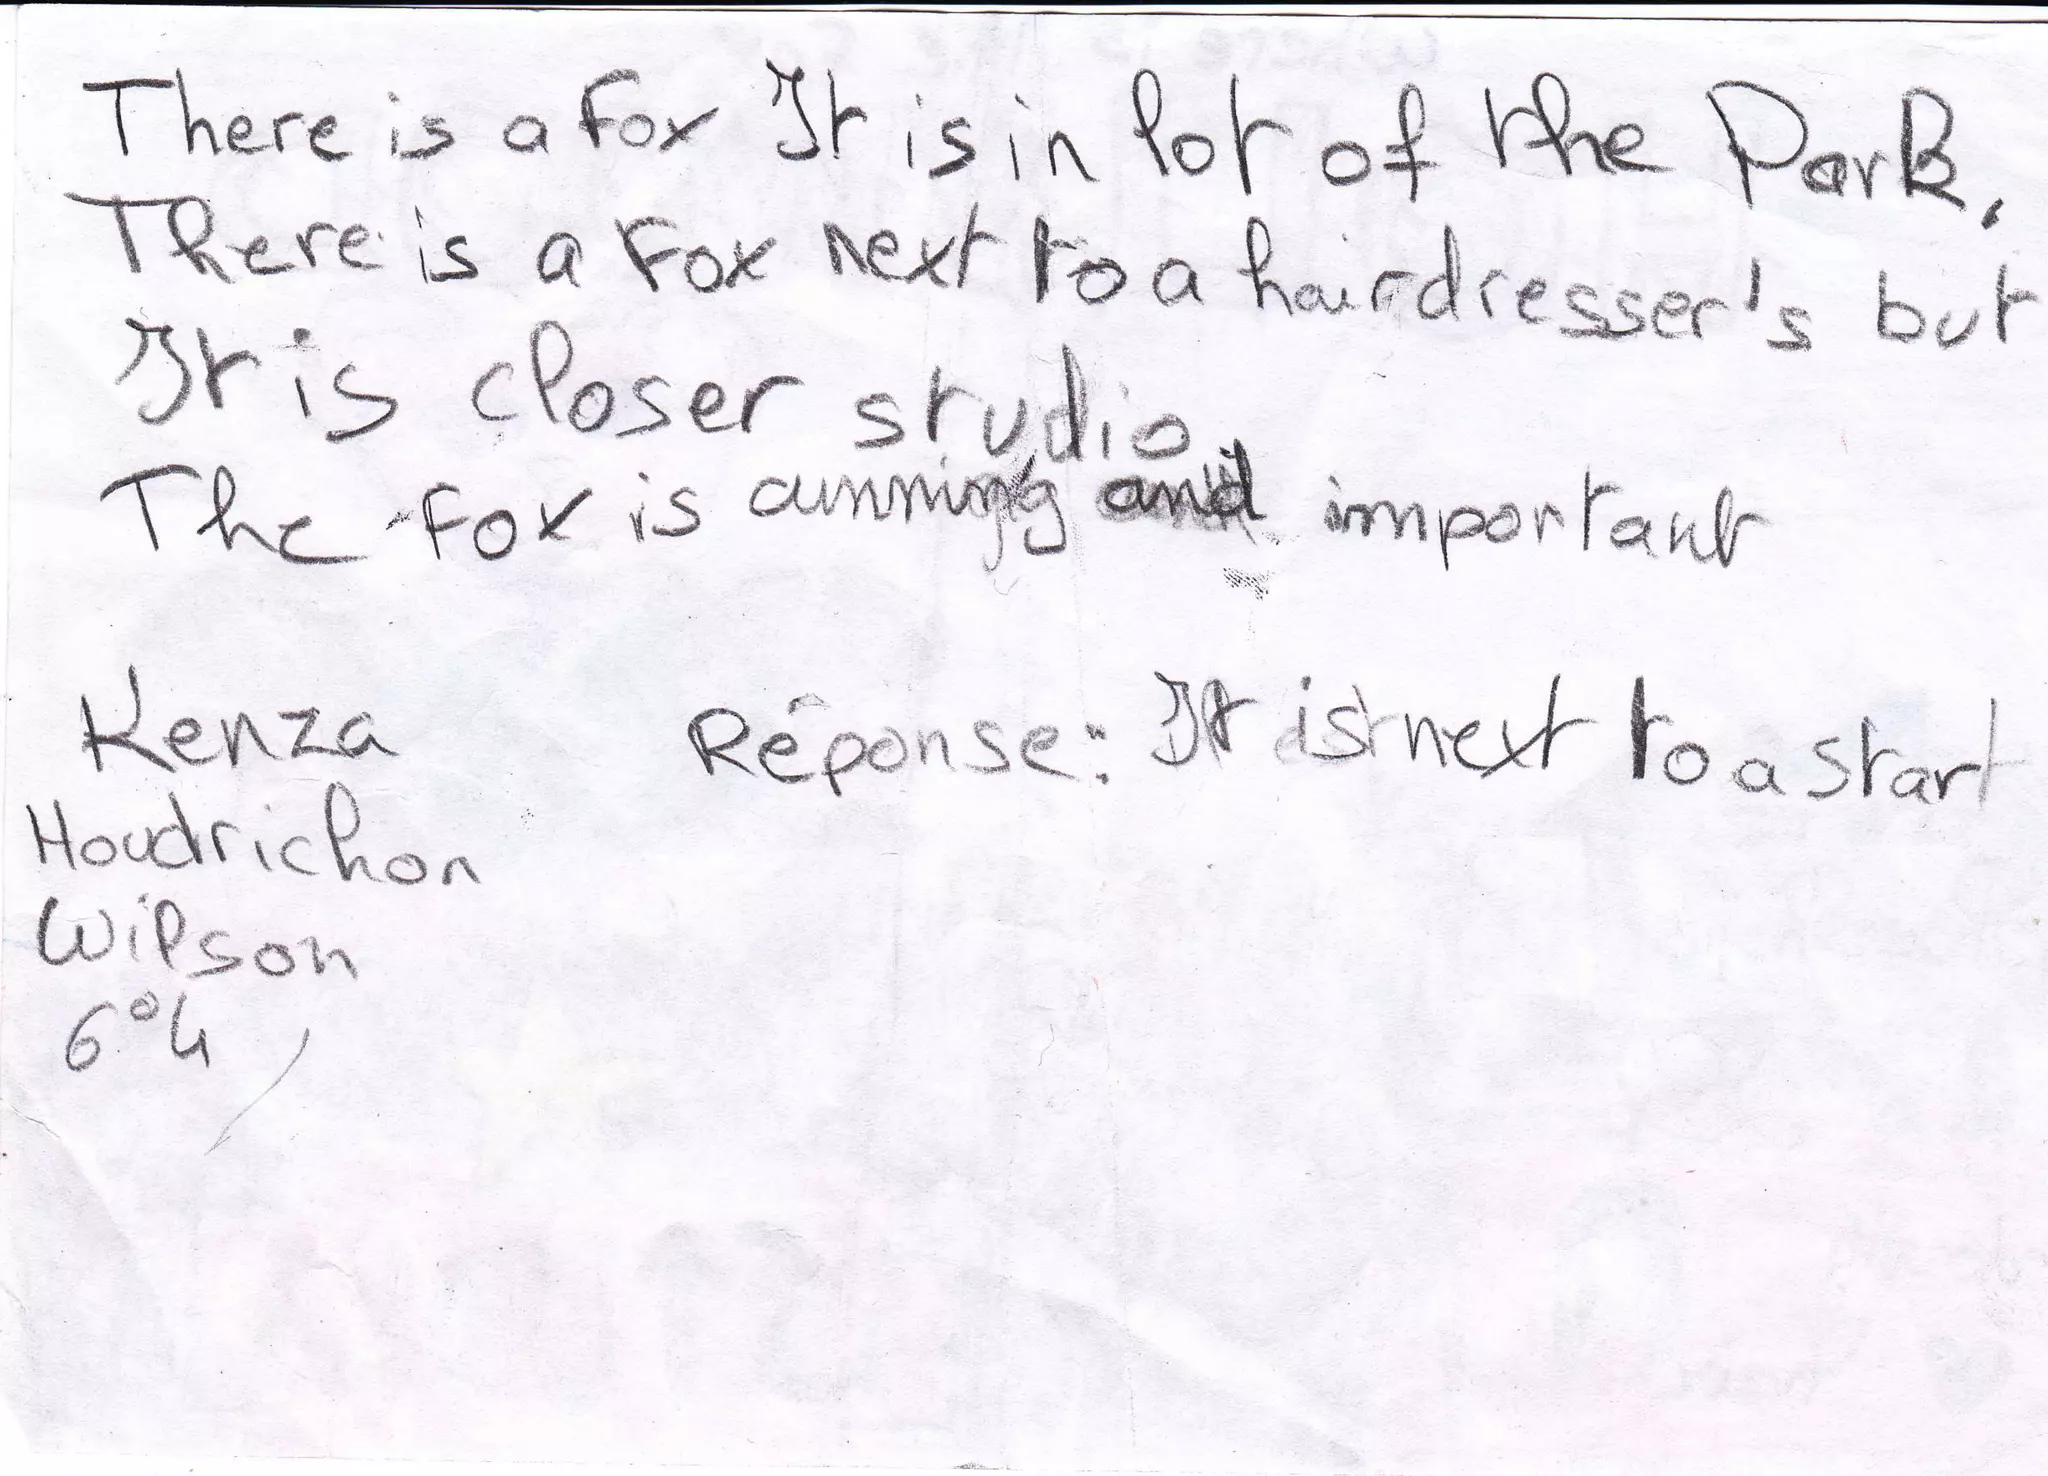 There is a fox It is in lot of the Park.
There is a fox next to a hairdresser's but
It is closer studio.
The fox is cunning and important
Kenza
Houdrichon
Wilson
6°4
Réponse: It is next to a start